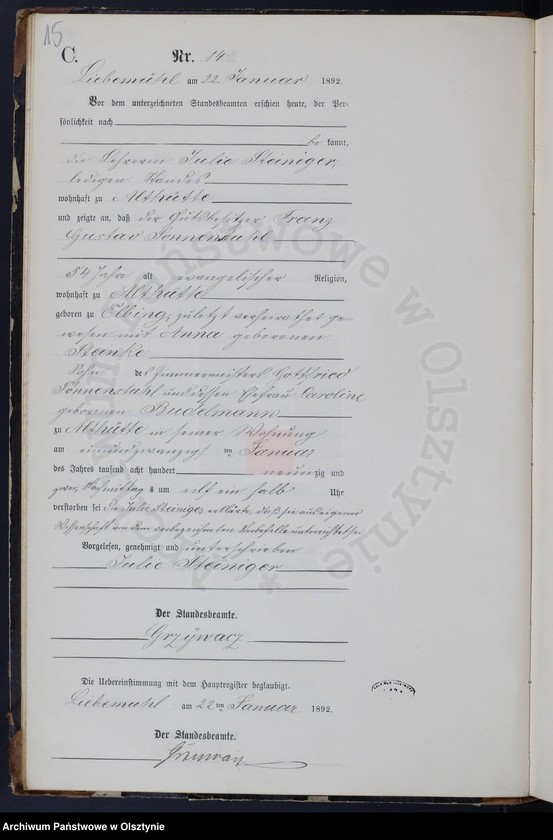 15
C.
Nr. 14
Liebemühl am 22. Januar 1892.
Vor dem unterzeichneten Standesbeamten erschien heute, der Per-
sönlichkeit nach
be kannt,
die Lehrerin Julie Steiniger,
ledigen Standes
wohnhaft zu Althütte
und zeigte an, daß der Gutsbesitzer Franz
Gustav Tonnenstuhl
54 Jahre alt evangelischer Religion,
wohnhaft zu Althütte
geboren zu Elbing, zuletzt verheirathet ge-
wesen mit Anna geborenen
Steinke
Sohn des Zimmermeisters Gottfried
Tonnenstuhl und dessen Ehefrau Caroline
geborenen Budelmann
zu Althütte in seiner Wohnung
am einundzwanzigsten Januar
des Jahres tausend acht hundert neun zig und
zwei, Nachmittag s um eilf ein halb Uhr
verstorben sei die Julie Steiniger erklärte, daß sie aus eigener
Wissenschaft von dem vorbezeichneten Sterbefalle unterrichtet sei
Vorgelesen, genehmigt und unterschrieben
Julie Steiniger
Der Standesbeamte.
Grzywacz
Die Uebereinstimmung mit dem Hauptregister beglaubigt.
Liebemühl am 22ten Januar 1892.
Der Standesbeamte.
Archiwum Państwowe w Olsztynie
Archiwum Państwowe w Olsztynie